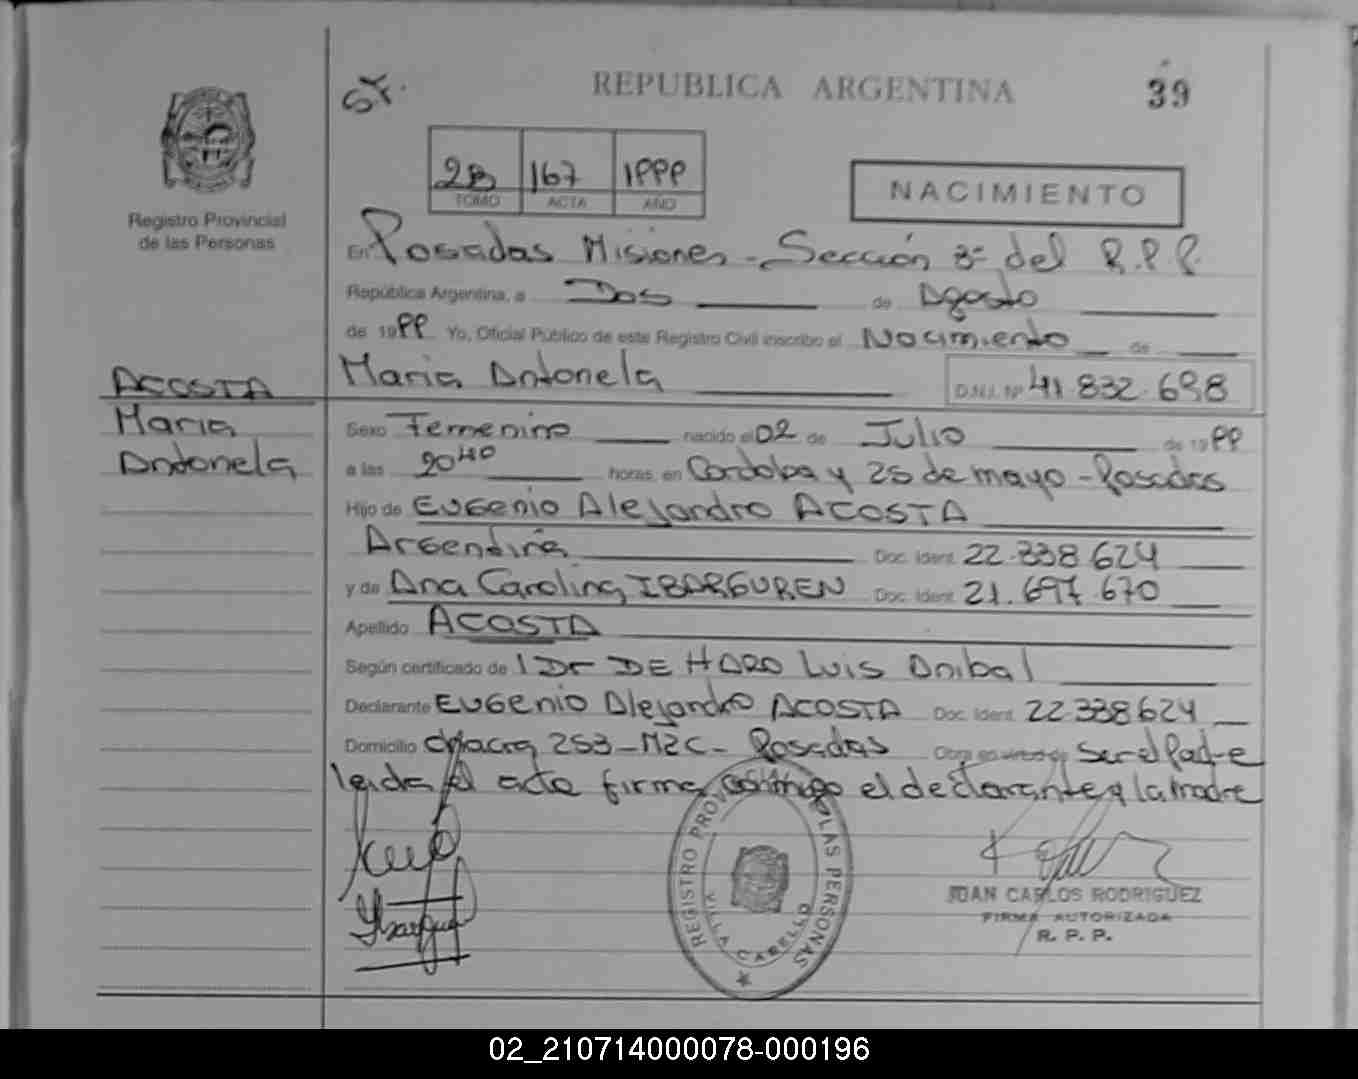 Sf.
REPUBLICA ARGENTINA
39
2B 167 1999
TOMO ACTA AÑO
NACIMIENTO
Registro Provincial
de las Personas
En Posadas Misiones - Sección 3ª del R.P.P.
República Argentina, a Dos de Agosto
de 1999 Yo, Oficial Público de este Registro Civil inscribo el Nacimiento de
Maria Antonela D.N.I. Nº 41.832.698
ACOSTA
Maria
Antonela
Sexo Femenino nacido el 02 de Julio de 1999
a las 20 40 horas, en Cordoba y 25 de mayo - Posadas
Hijo de Eugenio Alejandro ACOSTA
Argentina Doc. Ident. 22.338.624
y de Ana Carolina IBARGUREN Doc. Ident. 21.697.670
Apellido ACOSTA
Según certificado de 1 Dr DE HARO Luis Anibal
Declarante Eugenio Alejandro ACOSTA Doc. Ident. 22.338624
Domicilio chacra 253-MZC- Posadas Obra en virtud de ser el Padre
leida el acta firma conmigo el declarante y la madre
REGISTRO PROV. LAS PERSONAS
VILLA CABELLO
JUAN CARLOS RODRIGUEZ
FIRMA AUTORIZADA
R. P. P.
02_210714000078-000196